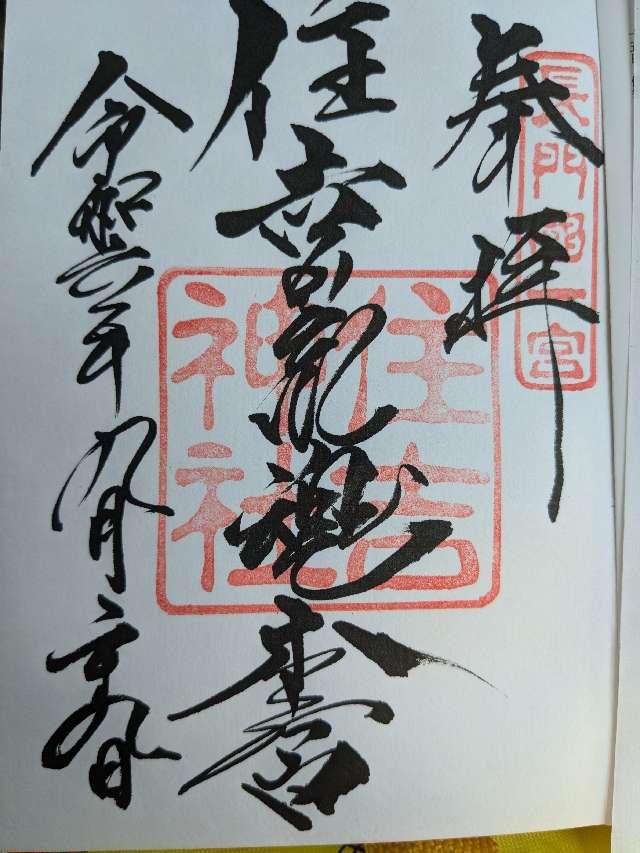 奉拝
長門國一宮
住吉荒魂本宮
住吉
神社
令和六年九月二十九日